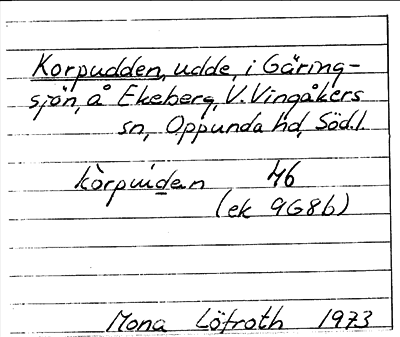 Korpudden, udde, i Gäring-
sjön, å Ekeberg, V. Vingåkers
sn, Oppunda hd, Söd.l.
kòrpuden 46
(ek 9G8b)
Mona Löfroth 1973